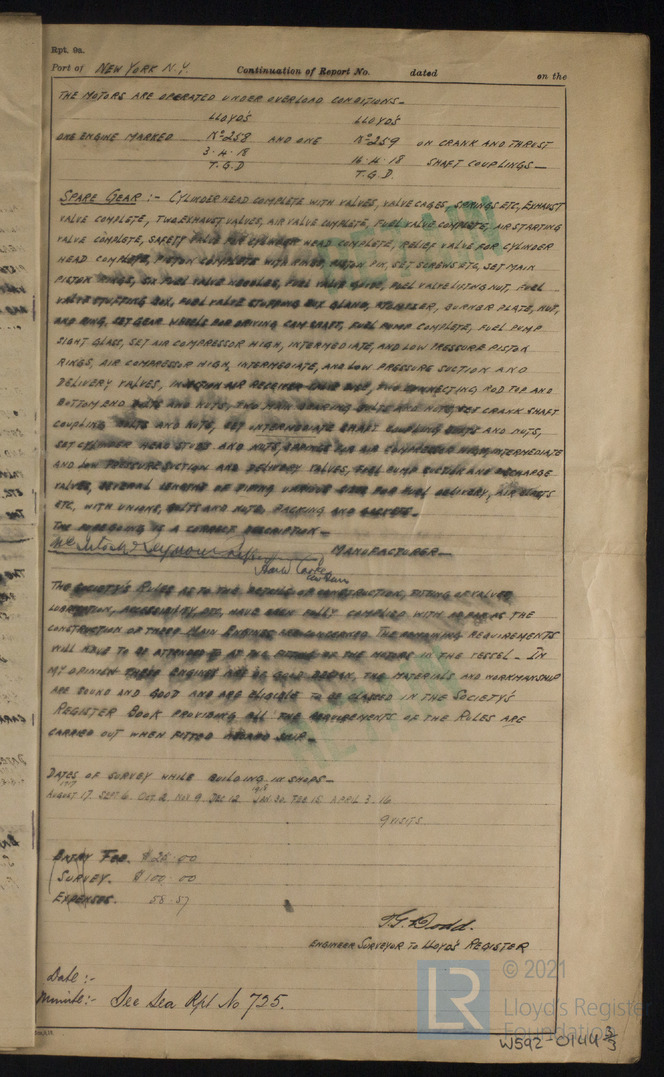 Rpt. 9a.
Port of NEW YORK N.Y. Continuation of Report No. dated on the
THE MOTORS ARE OPERATED UNDER OVERLOAD CONDITIONS.
LLOYD'S LLOYD'S
ONE ENGINE MARKED Nº 258 AND ONE Nº 259 ON CRANK AND THRUST
3·4·18 16·4·18 SHAFT COUPLINGS—
T.G.D T.G.D.
SPARE GEAR:- CYLINDER HEAD COMPLETE WITH VALVES, VALVE CAGES, SPRINGS ETC, EXHAUST
VALVE COMPLETE, TWO EXHAUST VALVES, AIR VALVE COMPLETE, FUEL VALVE COMPLETE, AIR STARTING
VALVE COMPLETE, SAFETY VALVE FOR CYLINDER HEAD COMPLETE, RELIEF VALVE FOR CYLINDER
HEAD COMPLETE, PISTON COMPLETE WITH RINGS, PISTON PIN, SET SCREWS ETC, SET MAIN
PISTON RINGS, SIX FUEL VALVE NEEDLES, FUEL VALVE GUIDE, FUEL VALVE LIFTING NUT, FUEL
VALVE STUFFING BOX, FUEL VALVE STUFFING BOX GLAND, ATOMISER, BURNER PLATE, NUT,
AND RING, SET GEAR WHEELS FOR DRIVING CAM SHAFT, FUEL PUMP COMPLETE, FUEL PUMP
SIGHT GLASS, SET AIR COMPRESSOR HIGH, INTERMEDIATE, AND LOW PRESSURE PISTON
RINGS, AIR COMPRESSOR HIGH, INTERMEDIATE, AND LOW PRESSURE SUCTION AND
DELIVERY VALVES, INJECTION AIR RECEIVER DISC, TWO CONNECTING ROD TOP AND
BOTTOM END BOLTS AND NUTS, TWO MAIN BEARING BOLTS AND NUTS, SET CRANK SHAFT
COUPLING BOLTS AND NUTS, SET INTERMEDIATE SHAFT COUPLING BOLTS AND NUTS,
SET CYLINDER HEAD STUDS AND NUTS, SPRINGS FOR AIR COMPRESSOR HIGH, INTERMEDIATE
AND LOW PRESSURE SUCTION AND DELIVERY VALVES, FUEL PUMP SUCTION AND DISCHARGE
VALVES, SEVERAL LENGTHS OF PIPING VARIOUS SIZES FOR FUEL DELIVERY, AIR BLASTS
ETC, WITH UNIONS, BOLTS AND NUTS, PACKING AND GASKETS.
THE FOREGOING IS A CORRECT DESCRIPTION—
McIntosh & Seymour MANUFACTURER—
THE SOCIETY'S RULES AS TO THE DETAILS OF CONSTRUCTION, FITTING OF VALVES
LUBRICATION, ACCESSIBILITY, ETC, HAVE BEEN FULLY COMPLIED WITH SO FAR AS THE
CONSTRUCTION OF THESE MAIN ENGINES ARE CONCERNED. THE REMAINING REQUIREMENTS
WILL HAVE TO BE ATTENDED TO AT THE FITTING OF THE MOTORS IN THE VESSEL— IN
MY OPINION THESE ENGINES ARE OF GOOD DESIGN, THE MATERIALS AND WORKMANSHIP
ARE SOUND AND GOOD AND ARE ELIGIBLE TO BE CLASSED IN THE SOCIETY'S
REGISTER BOOK PROVIDING ALL THE REQUIREMENTS OF THE RULES ARE
CARRIED OUT WHEN FITTED ABOARD SHIP—
DATES OF SURVEY WHILE BUILDING IN SHOPS—
1917 1918
AUGUST 17 SEPT 6 OCT 2 NOV 9 DEC 12 JAN 30 FEB 15 APRIL 3, 16
9 VISITS.
ENTRY FEE. $25.00
SURVEY. $100.00
EXPENSES. 58.57
T.G. Dodd.
ENGINEER SURVEYOR TO LLOYD'S REGISTER
Date:-
Minute:- See Sea Rpt. No 725.
LR
© 2021
Lloyd's Register
Foundation
W592-0144 3/3